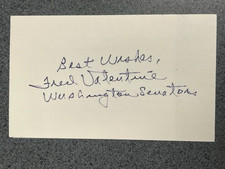 Best Wishes,
Fred Valentine
Washington Senators